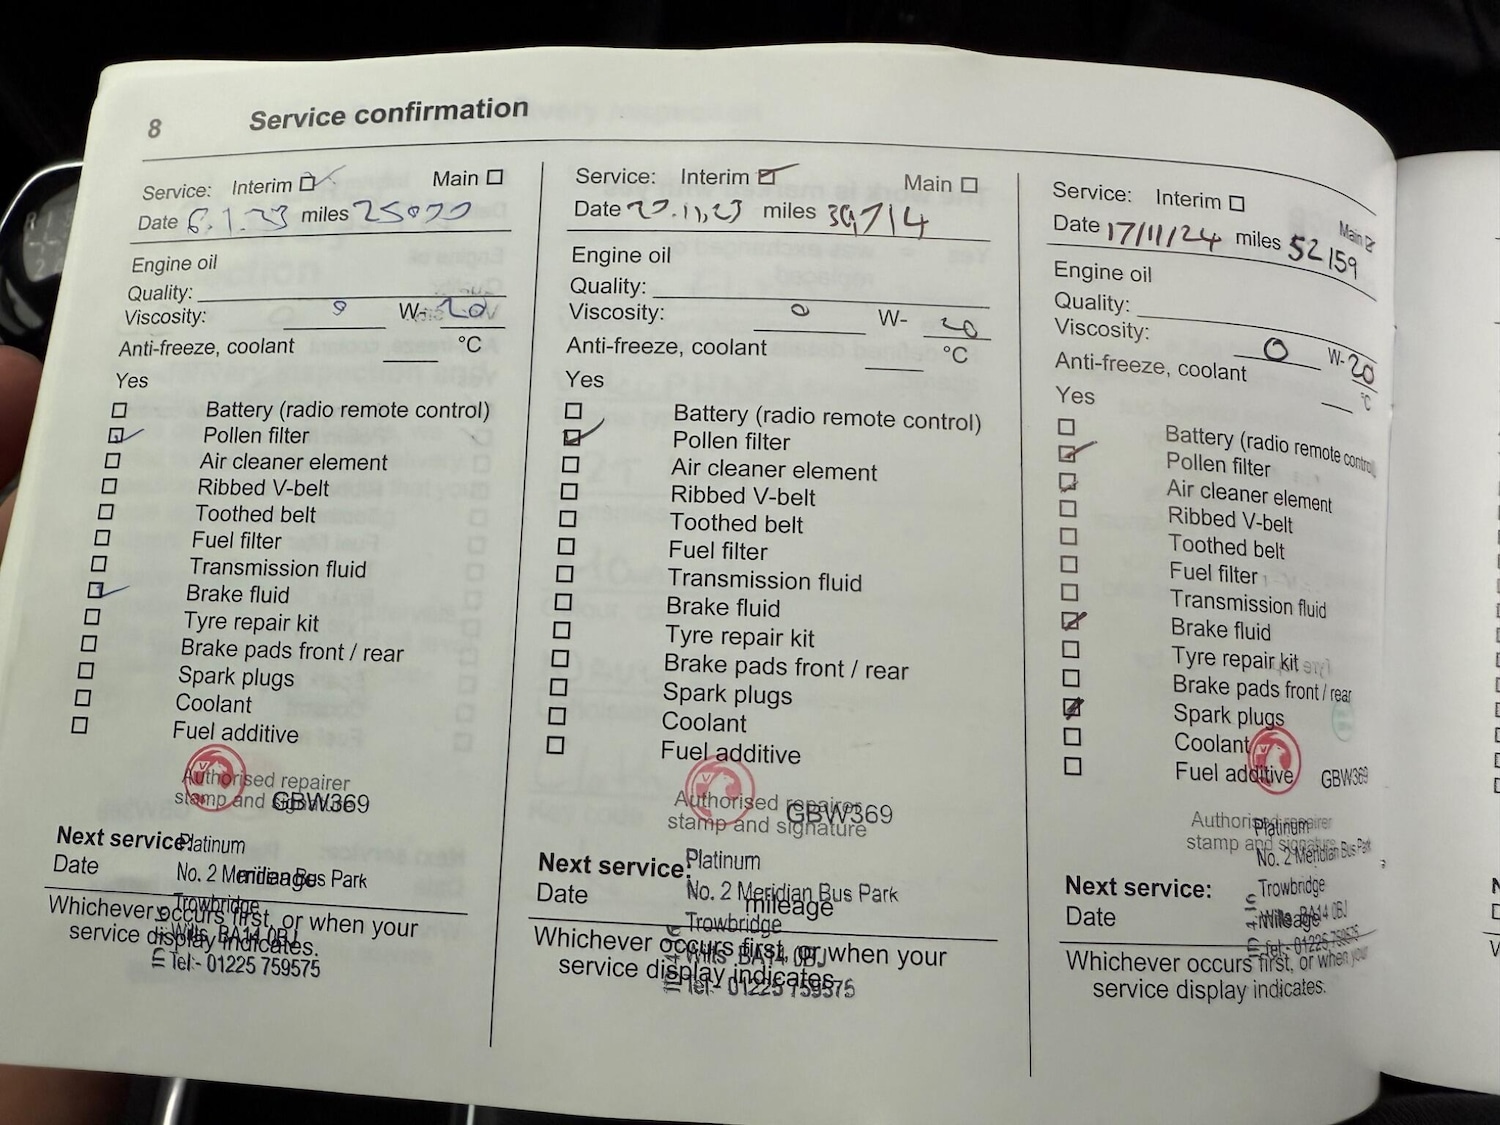 8 Service confirmation
Service: Interim Main
Date 6.1.23 miles 25
Engine oil
Quality:
Viscosity: 0 W- 20
Anti-freeze, coolant °C
Yes
Battery (radio remote control)
Pollen filter
Air cleaner element
Ribbed V-belt
Toothed belt
Fuel filter
Transmission fluid
Brake fluid
Tyre repair kit
Brake pads front / rear
Spark plugs
Coolant
Fuel additive
Authorised repairer
stamp and signature
GBW369
Next service:
Platinum
Date mileage
No. 2 Meridian Bus Park
Trowbridge
Whichever occurs first, or when your
Wilts, BA14 0BJ
service display indicates.
Tel:- 01225 759575
Service: Interim Main
Date miles 39714
Engine oil
Quality:
Viscosity: 0 W- 20
Anti-freeze, coolant °C
Yes
Battery (radio remote control)
Pollen filter
Air cleaner element
Ribbed V-belt
Toothed belt
Fuel filter
Transmission fluid
Brake fluid
Tyre repair kit
Brake pads front / rear
Spark plugs
Coolant
Fuel additive
Authorised repairer
stamp and signature
GBW369
Next service:
Platinum
Date mileage
No. 2 Meridian Bus Park
Trowbridge
Whichever occurs first, or when your
Wilts, BA14 0BJ
service display indicates.
Tel:- 01225 759575
Service: Interim Main
Date 17/11/24 miles 52159
Engine oil
Quality:
Viscosity: 0 W- 20
Anti-freeze, coolant °C
Yes
Battery (radio remote control)
Pollen filter
Air cleaner element
Ribbed V-belt
Toothed belt
Fuel filter
Transmission fluid
Brake fluid
Tyre repair kit
Brake pads front / rear
Spark plugs
Coolant
Fuel additive
GBW369
Authorised repairer
stamp and signature
Platinum
No. 2 Meridian Bus Park
Next service:
Trowbridge
Date mileage
Wilts, BA14 0BJ
Tel:- 01225 759575
Whichever occurs first, or when your
service display indicates.